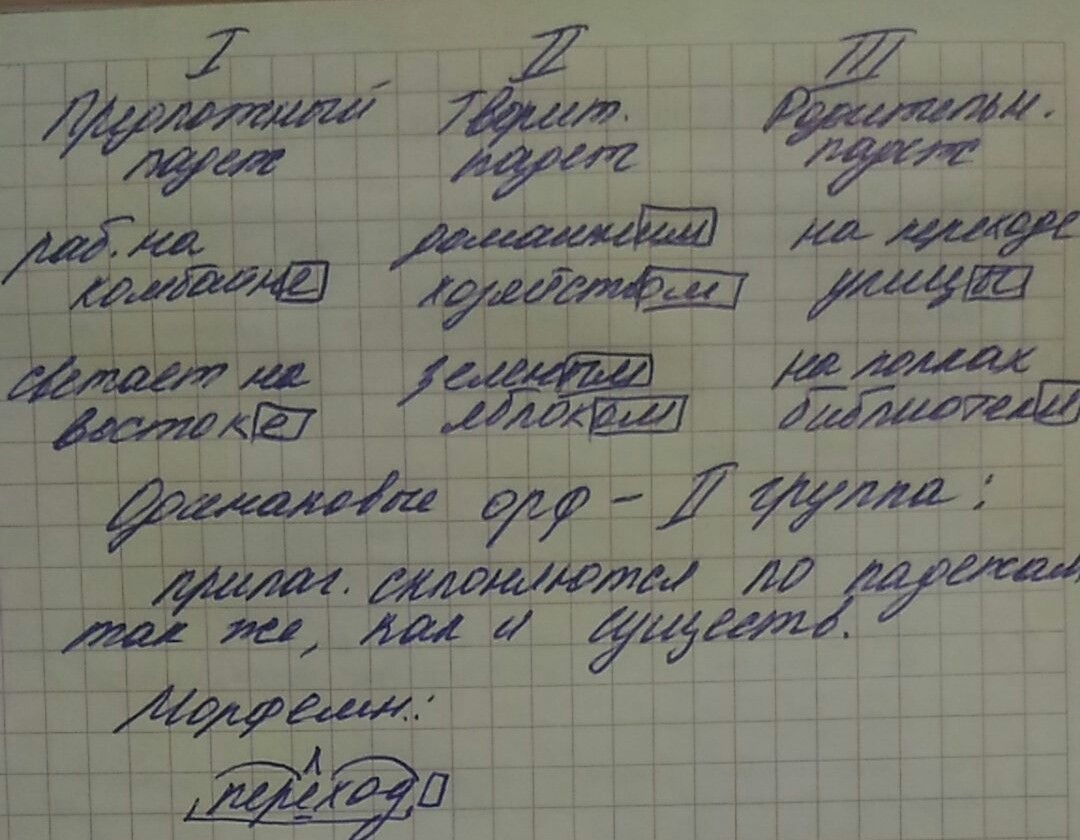 I II III
Предложный Творит. Родительн.
падеж падеж падеж
раб. на домашним на переходе
комбайне хозяйством улицы
светает на зеленым на полках
востоке яблоком библиотеки
Одинаковые орф – II группа:
прилаг. склоняются по падежам,
так же, как и существ.
Морфемн.:
переход